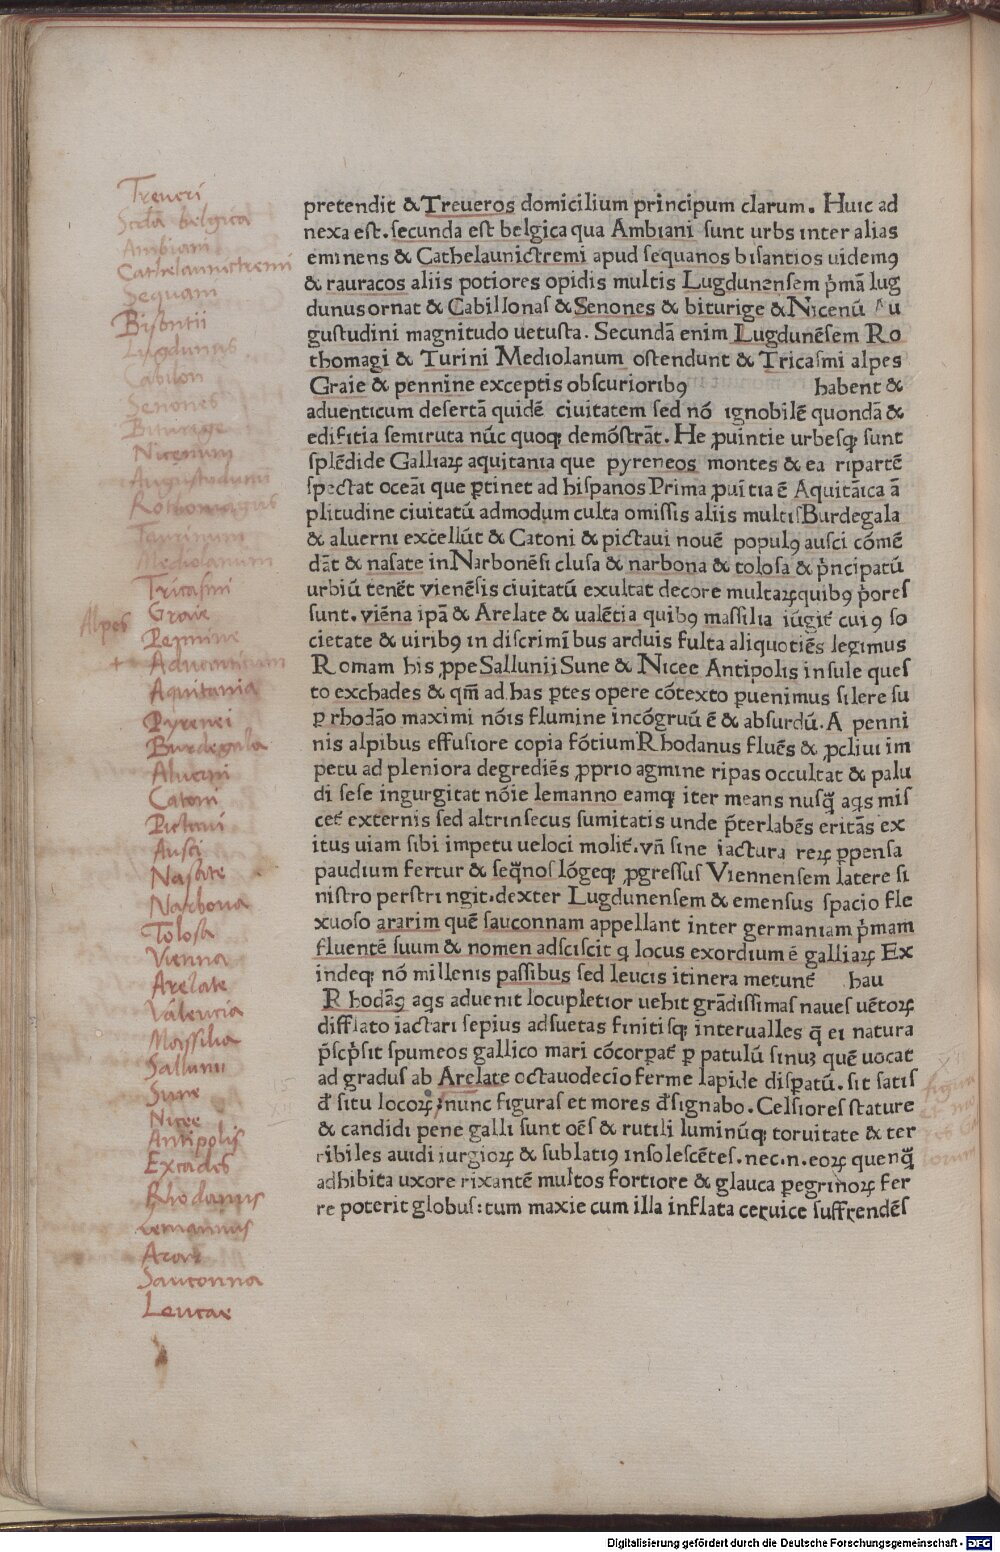 Treueri
Scda belgica
Ambiani
Cathelaunictremi
Sequani
Bisontii
Lugdunus
Cabilon
Senones
Biturige
Nicenum
Augustodunum
Rothomagus
Taurinum
Mediolanum
Tricasini
Alpes
Graie
Pennine
+ Aduenticum
Aquitania
Pyrenei
Burdegala
Aluerni
Catoni
Pictaui
Ausci
Nasate
Narbona
Tolosa
Vienna
Arelate
Valencia
Massilia
Salluuii
Sune
Nicee
Antipolis
Excades
Rhodanus
Lemannus
Arar
Sauconna
Leucae
pretendit & Treueros domicilium principum clarum. Huic ad
nexa est. secunda est belgica qua Ambiani sunt urbs inter alias
eminens & Cathelaunictremi apud sequanos bisantios uidemꝰ
& rauracos aliis potiores opidis multis Lugdunensem p̄mā lug
dunus ornat & Cabillonas & Senones & biturige & Nicenū Au
gustudini magnitudo uetusta. Secundā enim Lugdunēsem Ro
thomagi & Turini Mediolanum ostendunt & Tricasmi alpes
Graie & pennine exceptis obscurioribꝰ habent &
aduenticum desertā quidē ciuitatem sed nō ignobilē quondā &
edifitia semiruta nūc quoqꝫ demōstrāt. He ꝓuintie urbesqꝫ sunt
splēdide Galliaꝝ aquitania que pyreneos montes & ea ripartē
spectat oceāi que ꝑtinet ad hispanos Prima ꝓuītia ē Aquitāica ā
plitudine ciuitatū admodum culta omissis aliis multis Burdegala
& aluerni excellūt & Catoni & pictaui nouē populꝰ ausci cōmē
dāt & nasate in Narbonēsi clusa & narbona & tolosa & p̄ncipatū
urbiū tenēt vienēsis ciuitatū exultat decore multaꝝ quibꝰ p̄ores
sunt. viēna ipā & Arelate & ualētia quibꝰ massilia iūgit̄ cuiꝰ so
cietate & uiribꝰ in discrimībus arduis fulta aliquotiēs legimus
Romam his ꝓpe Sallunii Sune & Nicee Antipolis insule ques
to exchades & qm̄ ad has ꝑtes opere cōtexto ꝑuenimus silere su
ꝑ rhodāo maximi nōis flumine incōgruū ē & absurdū. A penni
nis alpibus effusiore copia fōtium Rhodanus fluēs & ꝓcliui im
petu ad pleniora degrediēs ꝓprio agmine ripas occultat & palu
di sese ingurgitat nōie lemanno eamqꝫ iter means nusq̄ʒ aqs mis
cet̄ externis sed altrinsecus sumitatis unde p̄terlabēs eritās ex
itus uiam sibi impetu ueloci molit̄. vn̄ sine iactura reꝝ ꝑpensa
paudium fertur & seq̄nos lōgeqꝫ ꝓgressus Viennensem latere si
nistro perstringit. dexter Lugdunensem & emensus spacio fle
xuoso ararim quē sauconnam appellant inter germaniam p̄mam
fluentē suum & nomen adsciscit q locus exordium ē galliaꝝ Ex
indeqꝫ nō millenis passibus sed leucis itinera metunt̄ hau
Rhodāꝰ aqs aduenit locupletior uehit grādissimas naues uētoꝝ
difflato iactari sepius adsuetas finitisqꝫ interualles q̄ ei natura
p̄scp̄sit spumeos gallico mari cōcorpat̄ ꝑ patulū sinuꝫ quē uocat
ad gradus ab Arelate octauodecīo ferme lapide dispatū. sit satis
đ situ locoꝝ; nunc figuras et mores đsignabo. Celsiores stature
& candidi pene galli sunt oēs & rutili luminūqꝫ toruitate & ter
ribiles auidi iurgioꝝ & sublatiꝰ insolescētes. nec.n.eoꝝ quenq̄ʒ
adhibita uxore rixantē multos fortiore & glauca ꝑegrinoꝝ fer
re poterit globus: tum maxīe cum illa inflata ceruice suffrendēs